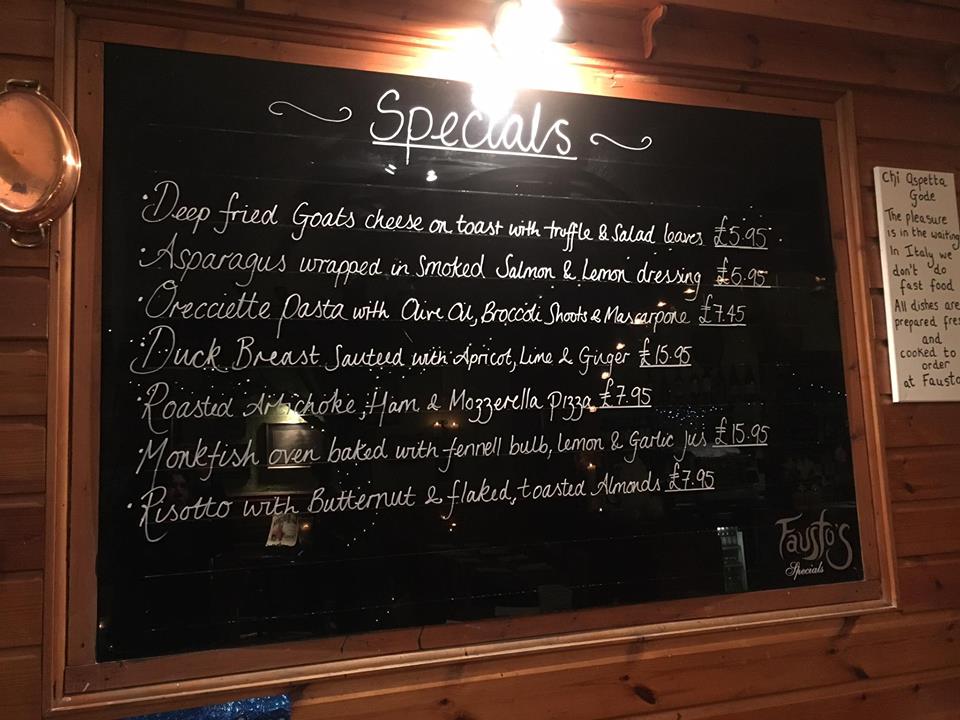 Specials
· Deep fried Goats cheese on toast with truffle & Salad leaves £5.95
· Asparagus wrapped in Smoked Salmon & Lemon dressing £5.95
· Orecciette Pasta with Olive Oil, Broccoli Shoots & Mascarpone £7.45
· Duck Breast Sauteed with Apricot, Lime & Ginger £15.95
· Roasted Artichoke, Ham & Mozzerella pizza £7.95
· Monkfish oven baked with fennell bulb, lemon & Garlic jus £15.95
· Risotto with Butternut & flaked, toasted Almonds £7.95
Fausto's
Specials
Chi Aspetta
Gode
The pleasure
is in the waiting
In Italy we
don't do
fast food
All dishes are
prepared fres
and
cooked to
order
at Fausto